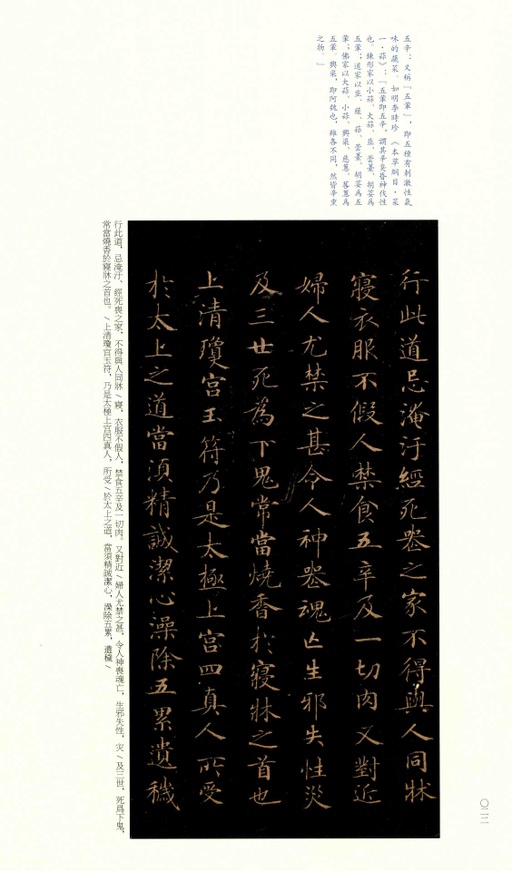 五辛：又稱「五葷」，即五種有刺激性氣
味的蔬菜。如明李時珍《本草綱目·菜
一·蒜》：「五葷即五辛，謂其辛臭昏神伐性
也。練形家以小蒜、大蒜、韭、蕓薹、胡荽爲
五葷；道家以韭、薤、蒜、蕓薹、胡荽爲五
葷；佛家以大蒜、小蒜、興渠、慈蔥、茖蔥爲
五葷。興渠，即阿魏也。雖各不同，然皆辛熏
之物。」
行此道忌淹汙經死喪之家不得與人同牀
寢衣服不假人禁食五辛及一切肉又對近
婦人尤禁之甚令人神喪魂亡生邪失性災
及三世死為下鬼常當燒香於寢牀之首也
上清瓊宮玉符乃是太極上宮四真人所受
於太上之道當須精誠潔心澡除五累遺穢
行此道，忌淹汙、經死喪之家，不得與人同牀\寢，衣服不假人，禁食五辛及一切肉。又對近\婦人尤禁之甚，令人神喪魂亡，生邪失性，灾\及三世，死爲下鬼，
常當燒香於寢牀之首也。\上清瓊宮玉符，乃是太極上宮四真人，所受\於太上之道，當須精誠潔心，澡除五累，遺穢\
〇二二